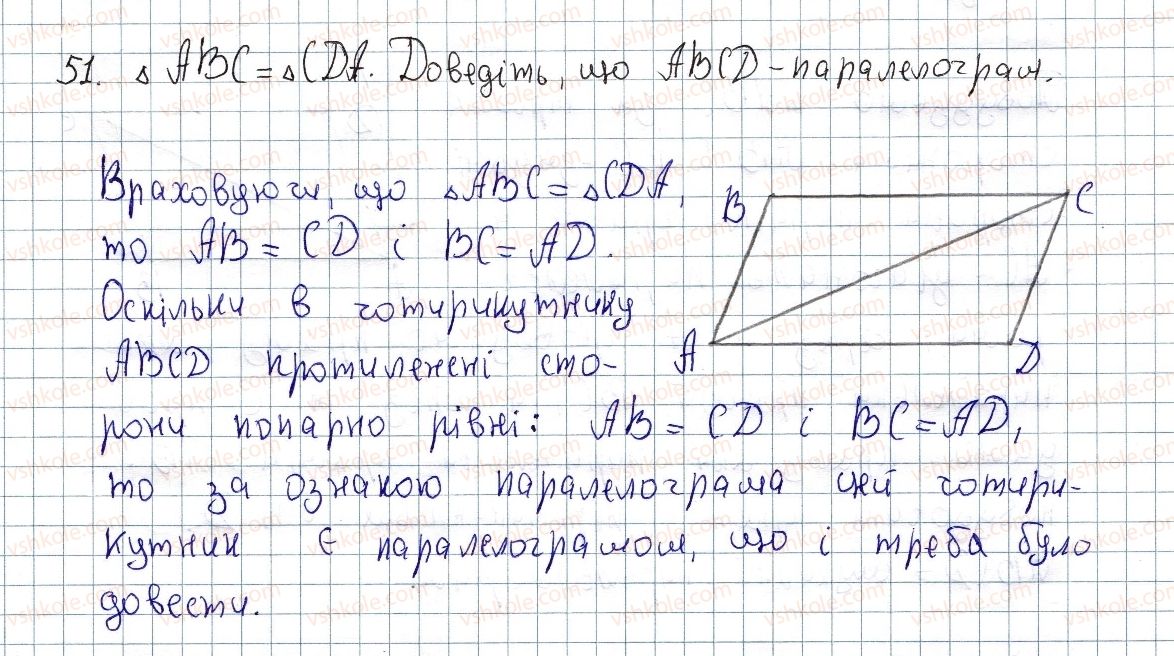 51. △ABC = △CDA. Доведіть, що ABCD - паралелограм.
Враховуючи, що △ABC = △CDA,
то AB = CD і BC = AD.
Оскільки в чотирикутнику
ABCD протилежні сто-
рони попарно рівні: AB = CD і BC = AD,
то за ознакою паралелограма цей чотири-
кутник є паралелограмом, що і треба було
довести.
B
C
A
D
vshkole.com